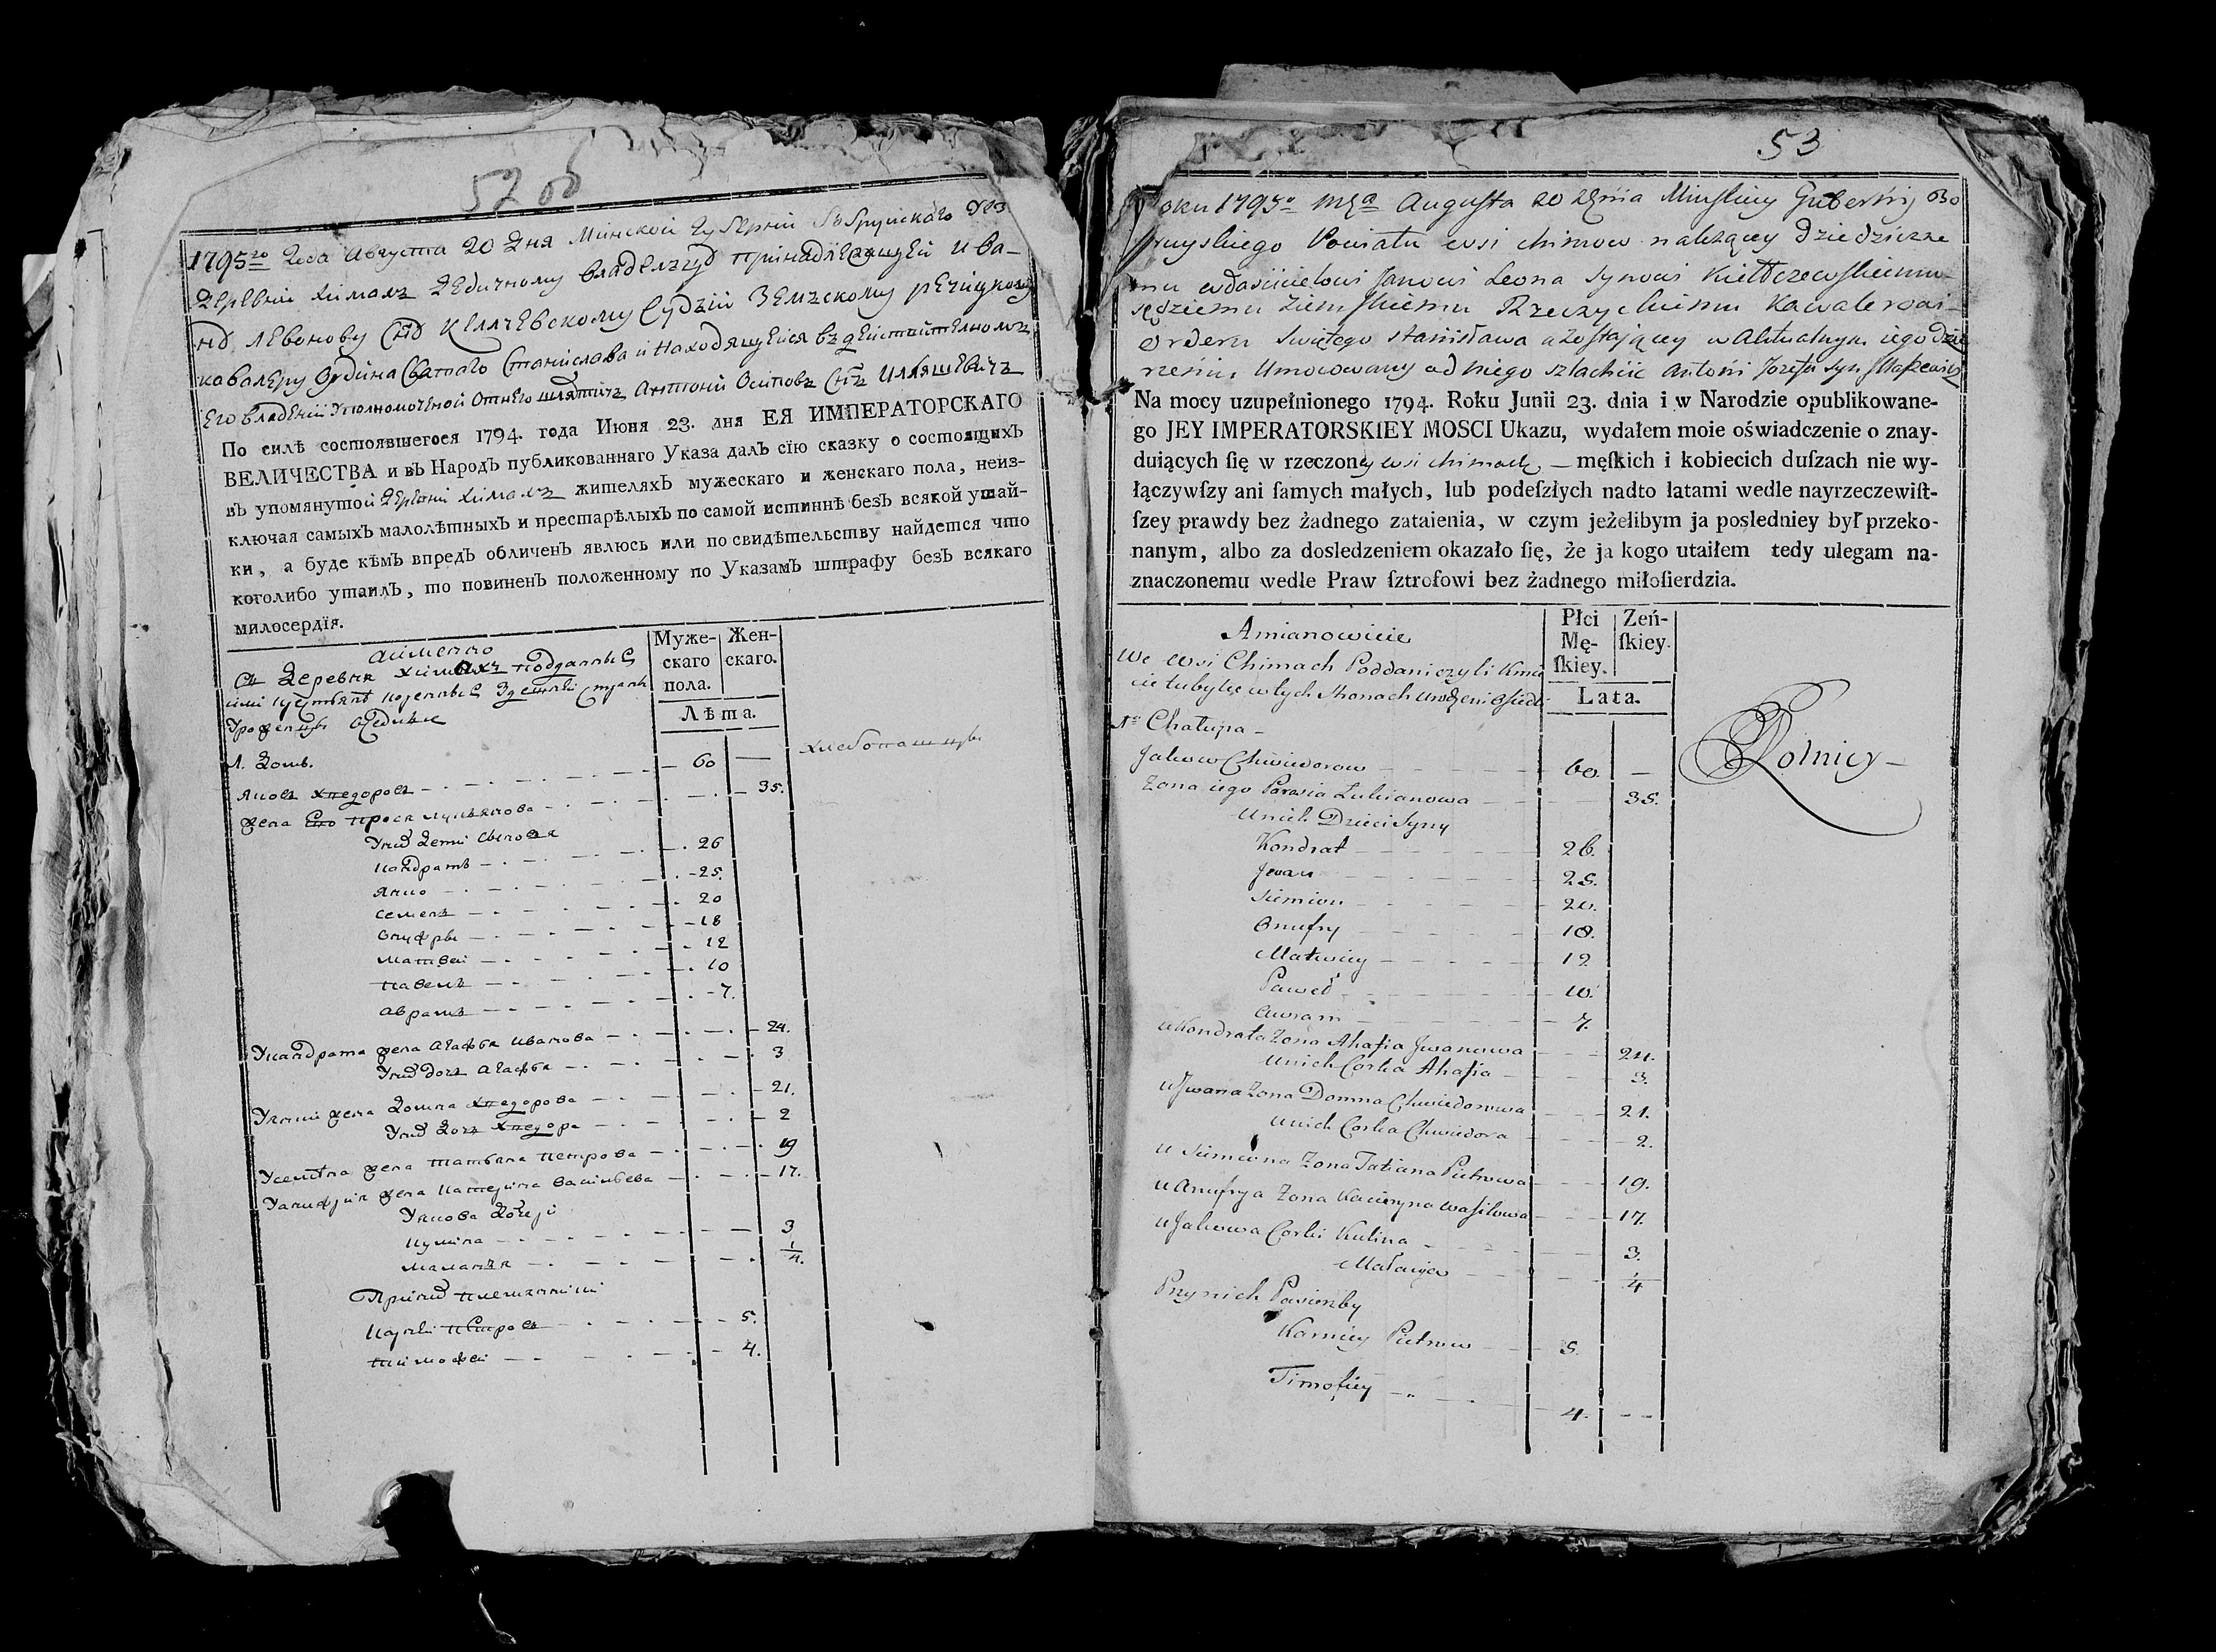 52 об
1795го Года Августа 20 Дня Минской Губернии Бобруйскаго Уез
Деревни Химахъ Дедичному владельцу принадлежащей Ива-
ну Левонову сну Келчевскому Судзии Земскому речицкому
кавалеру Ордина Святаго Станислава и Находящейся въ действительномъ
Его владении Уполномоченой Отнего шляхтичъ Антоний Осиповъ снъ Илляшевичъ
По силѣ состоявшегося 1794. года Июня 23. дня ЕЯ ИМПЕРАТОРСКАГО
ВЕЛИЧЕСТВА и въ Народѣ публикованнаго Указа далъ сїю сказку о состоящихъ
въ упомянутой Деревни Химахъ жителяхъ мужескаго и женскаго пола, неиз-
ключая самыхъ малолѣтныхъ и престарѣлыхъ по самой истиннѣ безъ всякой утай-
ки, а буде кѣмъ впредь обличенъ явлюсь или по свидѣтельству найдется что
коголибо утаилъ, то повиненъ положенному по Указамъ штрафу безъ всякаго
милосердїя.
аименно
Муже-
скаго
пола.
Жен-
скаго.
Лѣта.
Деревня Химахъ подданные
Уроженцы
1. Домъ.
хлебопашцы
Яковъ Хведоровъ 60
жена Его Прося Лукьянова 35.
Унихъ Дети сыновя
Кондратъ 26
Янко 25.
Семенъ 20
Онуфры 18
Матвей 12
Павелъ 10
Аврамъ 7.
Укандрата жена Агафья Иванова 24.
Унихъ дочъ Агафья 3
Уянки жена Домна Хведорова 21.
Унихъ Дочъ Хведора 2
Усемена жена Татьяна Петрова 19
Уануфрия жена Катерина Васильева 17.
Уякова Дочери
Кулина 3
Маланья 1/4.
При нихъ племянники
Карней Петровъ 5.
Тимофей 4.
53
Roku 1795o Mca Augusta 20 Dnia Minskiey Gubernij Bo
bruyskiego Powiatu wsi Chimow należącey Dziedziczne
mu właścicielowi Janowi Leona Synowi Kiełczewskiemu
sędziemu Ziemskiemu Rzeczyckiemu Kawalerowi
Orderu Swiętego Stanisława a zostającey w Aktualnym iego dzie
rżeniu Umocowany od niego szlachcic Antoni Jozefa Syn Illaszewicz
Na mocy uzupełnionego 1794. Roku Junii 23. dnia i w Narodzie opublikowane-
go JEY IMPERATORSKIEY MOSCI Ukazu, wydałem moie oświadczenie o znay-
duiących ſię w rzeczoney wsi Chimach, — męſkich i kobiecich duſzach nie wy-
łączywſzy ani ſamych małych, lub podeſzłych nadto latami wedle nayrzeczewiſt-
ſzey prawdy bez żadnego zataienia, w czym jeżelibym ja posledniey był przeko-
nanym, albo za dosledzeniem okazało ſię, że ja kogo utaiłem tedy ulegam na-
znaczonemu wedle Praw ſztrofowi bez żadnego miłoſierdzia.
Amianowicie
Płci
Mę-
ſkiey.
Zeń-
ſkiey.
Lata.
We Wsi Chimach Poddani czyli Kmie
cie tubylce w tych stronach urodzeni osiedli
1. Chałupa
Rolnicy
Jakow Chwiedorow 60. —
Zona iego Parasia Łukianowa 35.
Unich Dzieci Syny
Kondrat 26.
Jwan 25.
Siemion 20.
Onufry 18.
Matwiey 12
Paweł 10.
Awram 7.
u Kondrata Zona Ahafia Jwanowa 24.
Unich Corka Ahafia 3.
u Jwana Zona Domna Chwiedorowa 21.
Unich Corka Chwiedora 2.
u Siemiona Zona Tatiana Pietrowa 19.
u Anufrya Zona Kacieryna Wasilowa 17.
u Jakowa Corki Kulina 3.
Małanja 1/4
Przy nich Pasierzby
Karniey Pietrow 5.
Timofiey 4. —